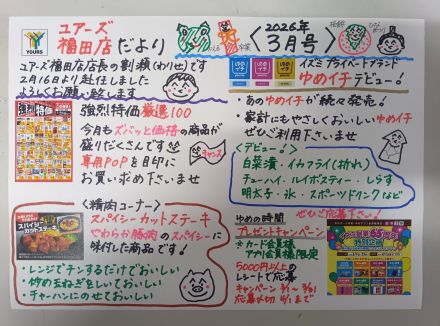 YOURS
ユアーズ
福田店だより
卒業
〈2026年
3月号〉
ユアーズ福田店店長の割瀬(わりせ)です
2月16日より赴任しました
よろしくお願い致します
イズミプライベートブランド
ゆめイチデビュー！
強烈特価
強烈特価厳選100
今月もズバッと価格の商品が
盛りだくさんです
専用POPを目印に
お買い求め下さいませ
チャンス
・あのゆめイチが続々発売！
・家計にもやさしくおいしいゆめイチ
ぜひご利用下さいませ
〈デビュー〉
白菜漬・イカフライ(折れ)
チューハイ・ルイボスティー・しらす
明太子・氷・スポーツドリンクなど
〈精肉コーナー〉
スパイシーカットステーキ
やわらか豚肉のスパイシーに
味付した商品です！
・レンジでチンするだけでおいしい
・炒め玉ねぎをしいておいしい
・チャーハンにのせておいしい
スパイシー
カットステーキ
ゆめの時間
プレゼントキャンペーン
ぜひご応募下さい！
※カード会員様
アプリ会員様限定
5000円以上の
レシートで応募
キャンペーン 3/1〜3/31
応募〆切 4/5まで